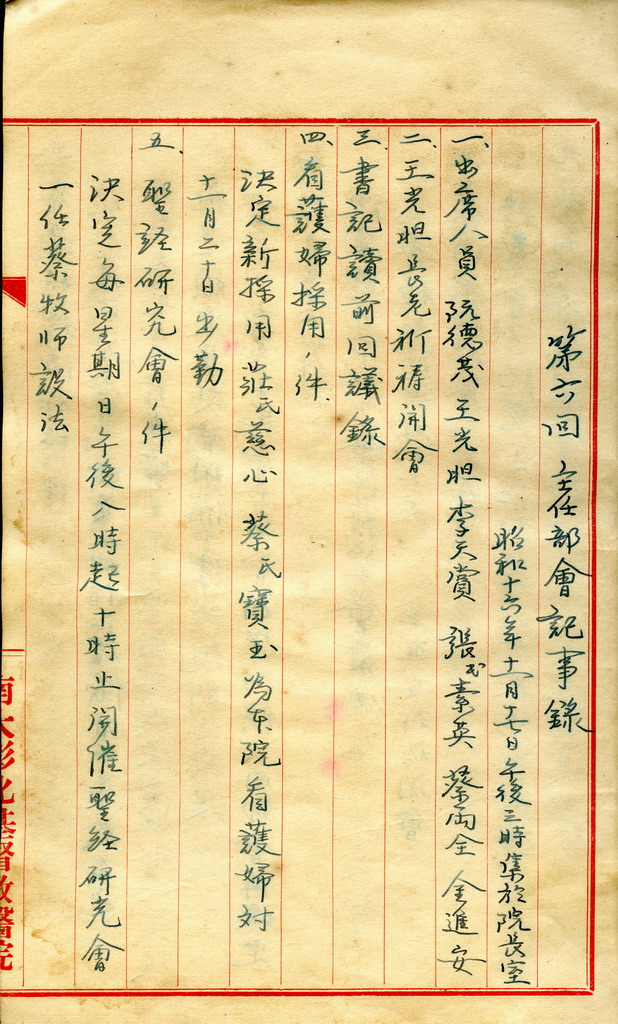 第六回 主任部會記事錄
昭和十六年十一月十七日午後三時集於院長室
一、出席人員 阮德茂 王光胆 李天賞 張氏素英 蔡兩全 金進安
二、王光胆長老祈禱開會
三、書記讀前回議錄
四、看護婦採用ノ件
決定新採用 莊氏慈心 蔡氏寶玉 為本院看護婦対
十一月二十日出勤
五、聖経研究會ノ件
決定每星期日午後八時起十時止開催聖経研究會
一任蔡牧師設法
南大彰化基督教醫院